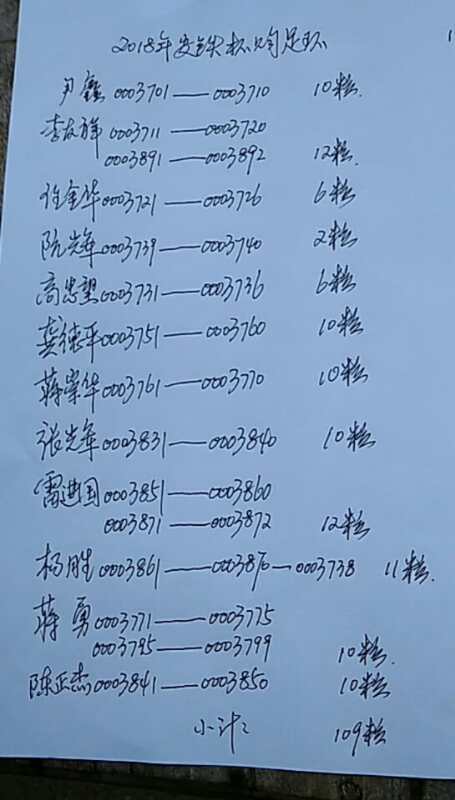 2018年发铁杯鸽足环
尹鑫0003701——0003710 10粒.
李友祥0003711——0003720
0003891——0003892 12粒.
任金华0003721——0003726 6粒
阮光华0003739——0003740 2粒
高忠望0003731——0003736 6粒
龚德平0003751——0003760 10粒
蒋崇华0003761——0003770 10粒
张光华0003831——0003840 10粒
雷进国0003851——0003860
0003871——0003872 12粒
杨胜0003861——0003870—0003738 11粒.
蒋勇0003771——0003775
0003795——0003799 10粒.
陈正杰0003841——0003850 10粒
小计: 109粒